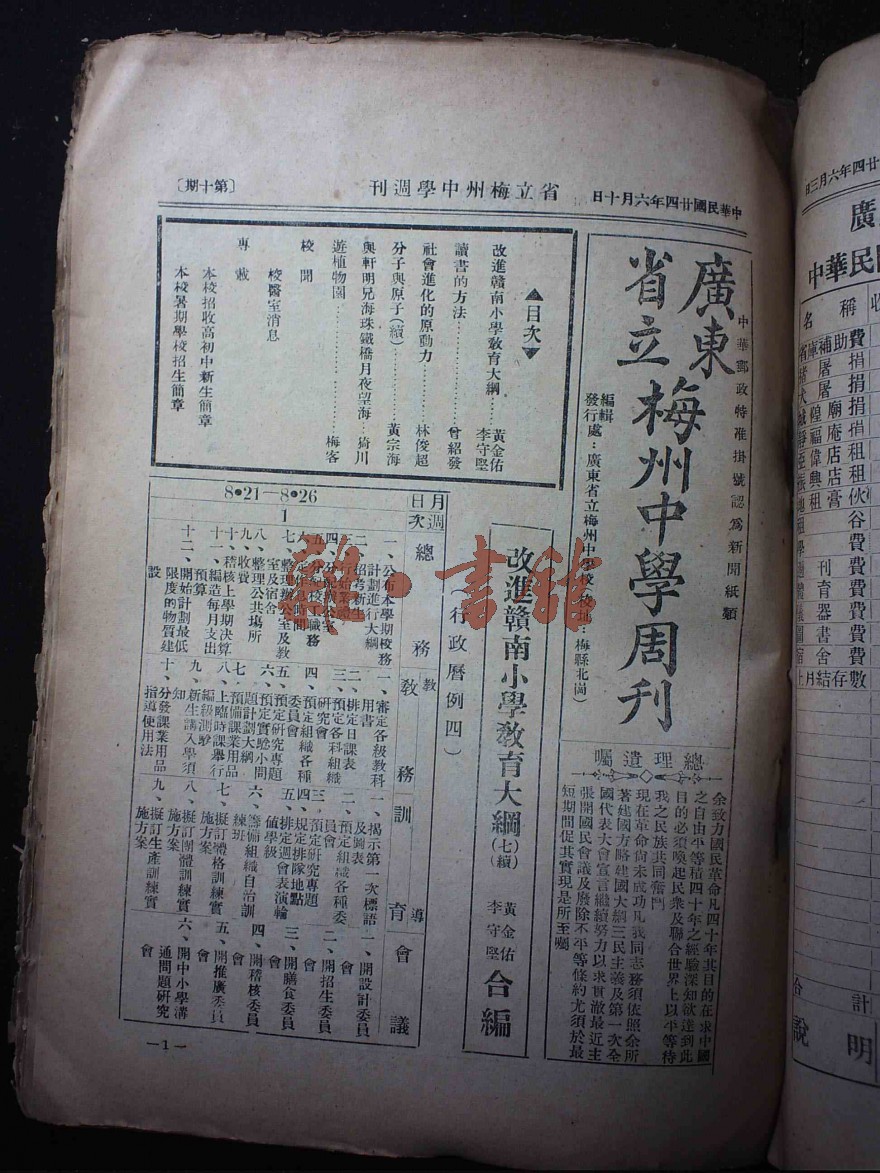 中華民國廿四年六月十日
省立梅州中學週刊
〔第十期〕
中華郵政特准掛號認為新聞紙類
廣東
省立
梅州中學周刊
編輯
發行處：廣東省立梅州中學校（校址：梅縣北崗）
總理遺囑
余致力國民革命凡四十年其目的在求中國
之自由平等積四十年之經驗深知欲達到此
目的必須喚起民衆及聯合世界上以平等待
我之民族共同奮鬥
現在革命尚未成功凡我同志務須依照余所
著建國方略建國大綱三民主義及第一次全
國代表大會宣言繼續努力以求貫澈最近主
張開國民會議及廢除不平等條約尤須於最
短期間促其實現是所至囑
▲目次▼
改進贛南小學教育大綱………黃金佑 李守堅
讀書的方法………曾紹發
社會進化的原動力………林俊超
分子與原子（續）………黃宗海
與軒明兄海珠鐵橋月夜望海…綺川
遊植物園………梅客
校聞
校醫室消息
專載
本校招收高初中新生簡章
本校暑期學校招生簡章
改進贛南小學教育大綱（七續） 黃金佑 李守堅 合編
（行政曆例四）
月日 週次
總務
教務
訓育
導
會議
8•21—8•26
1
一、公布本學期校務計劃進行大綱
二、招考新生
三、行始業式
四、分配辦公室
五、分配校工職務
六、定作息時間
七、整理辦公室及教室及宿舍
八、整理公共場所
九、收費
十、稽核上學期決算
十一、編造每月支出預算
十二、開始計劃最低限度的物質建設
一、審定各級教科用書
二、排定日課表
三、預定各科組織研究會
四、預定組織各種委員會
五、預定研究專題
六、預定實驗小間題計劃大綱
七、預備課業用品
八、上臨時課舉行編級測驗
九、新生講入學須知
十、分發課業用品指導使用法
一、揭示第一次標語及圖表
二、預定組織各種委員會
三、預定研究專題
四、規定排隊地點
五、排定週會表演輪值學級
六、籌備組織自治訓練班
七、擬訂體格訓練實施方案
八、擬訂團體訓練實施方案
九、擬訂生產訓練實施方案
一、開設計委員會
二、開招生委員會
三、開膳食委員會
四、開稽核委員會
五、開推廣委員會
六、開中小學溝通問題研究會
—1—
廿四年六月三日
廣
中華民國
名稱
收
補助費
上月結存數
合計
說明